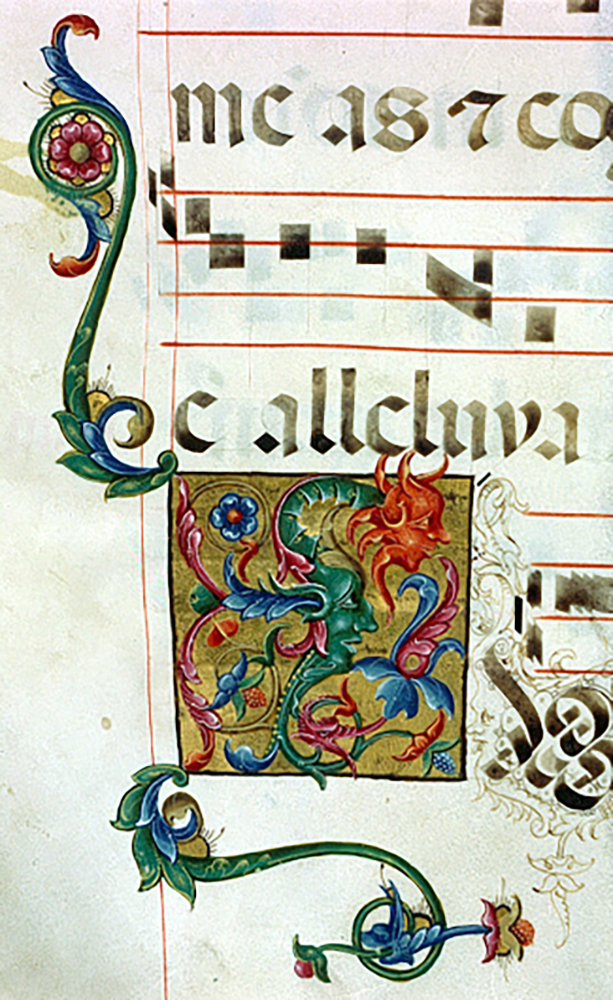 me as ⁊ co
e alleluya